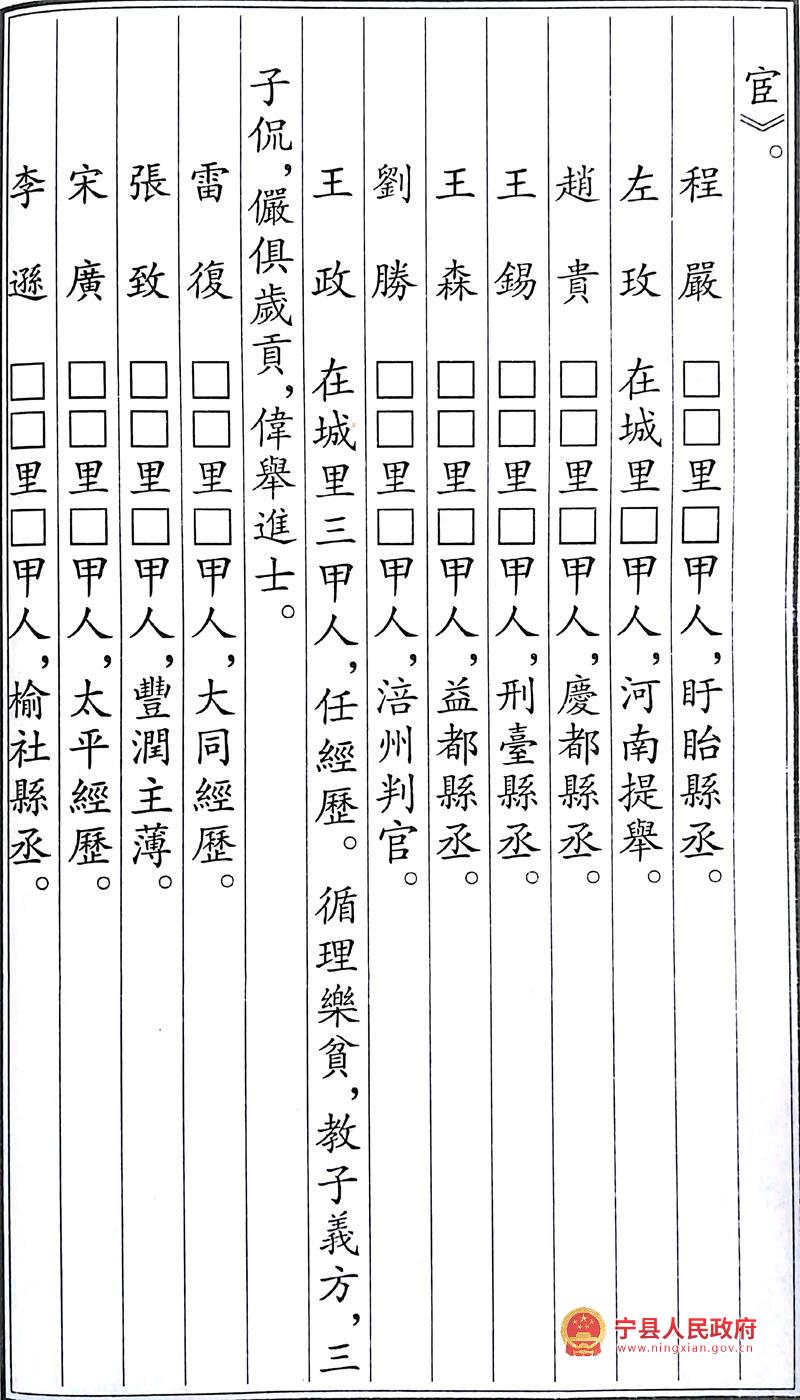 宦》。
程嚴　□□里□甲人，盱眙縣丞。
左玫　在城里□甲人，河南提舉。
趙貴　□□里□甲人，慶都縣丞。
王錫　□□里□甲人，刑臺縣丞。
王森　□□里□甲人，益都縣丞。
劉勝　□□里□甲人，涪州判官。
王政　在城里三甲人，任經歷。循理樂貧，教子義方，三
子侃，儼俱歲貢，偉舉進士。
雷復　□□里□甲人，大同經歷。
張致　□□里□甲人，豐潤主薄。
宋廣　□□里□甲人，太平經歷。
李遜　□□里□甲人，榆社縣丞。
宁县人民政府
www.ningxian.gov.cn